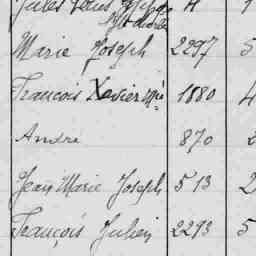 Jules Louis
Marie Joseph 2297 5
François Xavier 1880 4
André 870
Jean Marie Joseph 513 2
François Julien 2293 5